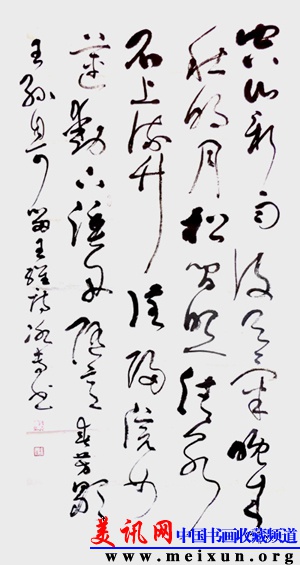 空山新雨後天氣晚来
秋明月松間照清泉
石上流竹喧歸浣女
蓮動下漁舟隨意春芳歇
王孫自可留王維詩书
美讯网 中国书画收藏频道
www.meixun.org